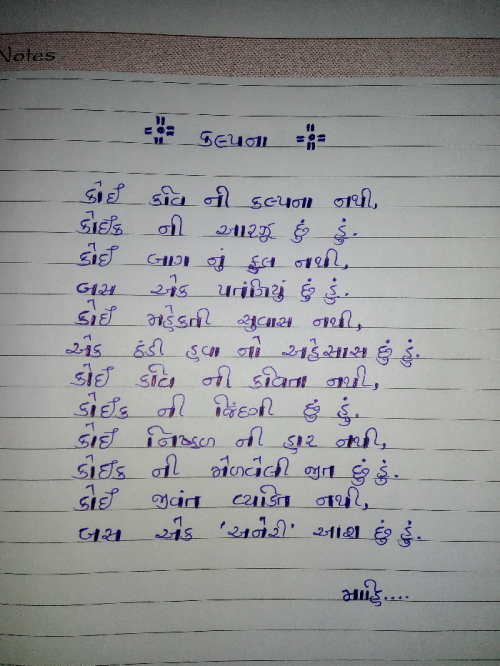 Notes
કલ્પના
કોઈ કવિ ની કલ્પના નથી,
કોઈક ની આરઝૂ છું હું.
કોઈ બાગ નું ફુલ નથી,
બસ એક પતંગિયું છું હું.
કોઈ મહેકતી સુવાસ નથી,
એક ઠંડી હવા નો અહેસાસ છું હું.
કોઈ કવિ ની કવિતા નથી,
કોઈક ની જિંદગી છું હું.
કોઈ નિષ્ફળ ની હાર નથી,
કોઈક ની મેળવેલી જીત છું હું.
કોઈ જીવંત વ્યક્તિ નથી,
બસ એક 'અનેરી' આશ છું હું.
માહિ....